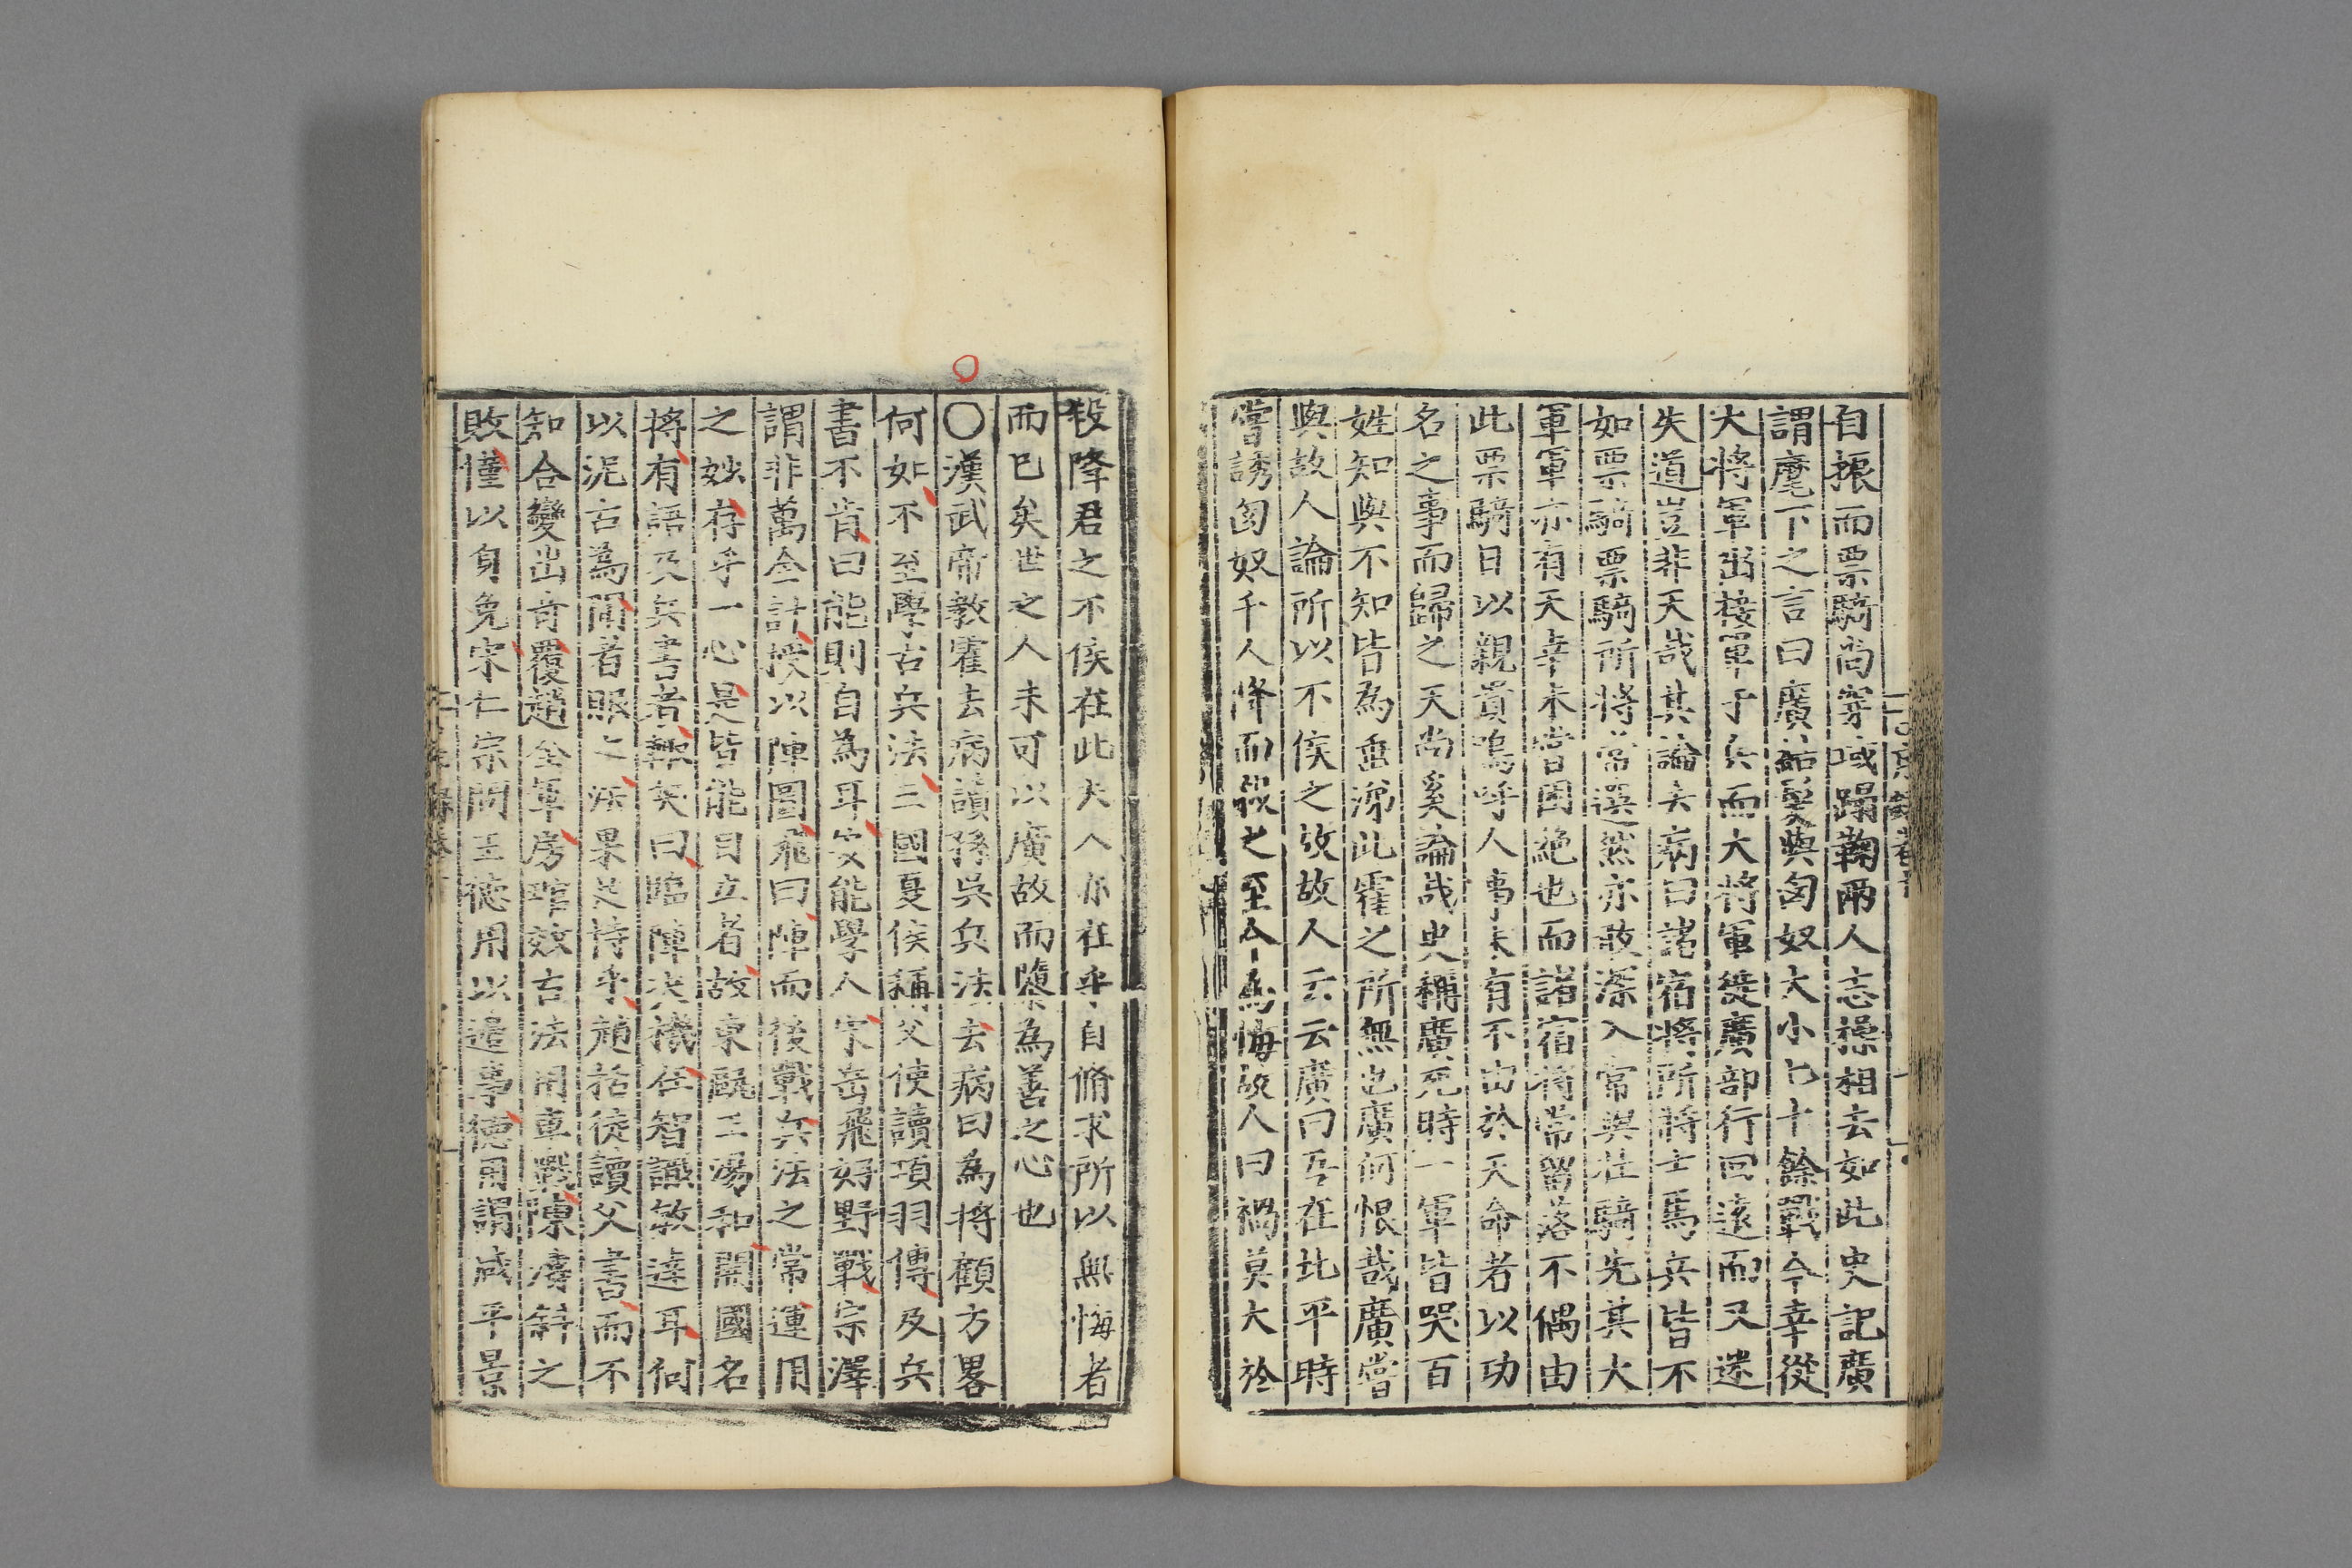 自振而票騎尚穿域蹋鞠兩人志操相去如此史記廣
謂麾下之言曰廣結髮與匈奴大小七十餘戰今幸從
大將軍出接單于兵而大將軍徙廣部行回遠而又迷
失道豈非天哉其論去病曰諸宿將所將士馬兵皆不
如票騎票騎所將常選然亦敢深入常與壯騎先其大
軍軍亦有天幸未嘗困絶也而諸宿將常留落不偶由
此票騎日以親貴嗚呼人事未有不由於天命者以功
名之事而歸之天尚奚論哉史稱廣死時一軍皆哭百
姓知與不知皆為垂涕此霍之所無也廣何恨哉廣嘗
與故人論所以不侯之故故人云云廣曰吾在北平時
嘗誘匈奴千人降而殺之至今為悔故人曰禍莫大於
殺降君之不侯在此夫人亦在乎自脩求所以無悔者
而已矣世之人未可以廣故而隳為善之心也
〇漢武帝教霍去病讀孫吳兵法去病曰為將顧方畧
何如不至學古兵法三國夏侯稱父使讀項羽傳及兵
書不肯曰能則自為耳安能學人宋岳飛好野戰宗澤
謂非萬全計授以陣圖飛曰陣而後戰兵法之常運用
之妙存乎一心是皆能自立者故東甌王湯和開國名
將有語及兵書者輒笑曰臨陣決機在智識敏達耳何
以泥古為聞者服之法果足恃乎趙括徒讀父書而不
知合變出奇覆趙全軍房琯效古法用車戰陳濤斜之
敗僅以身免宋仁宗問王德用以邊事德用謂咸平景